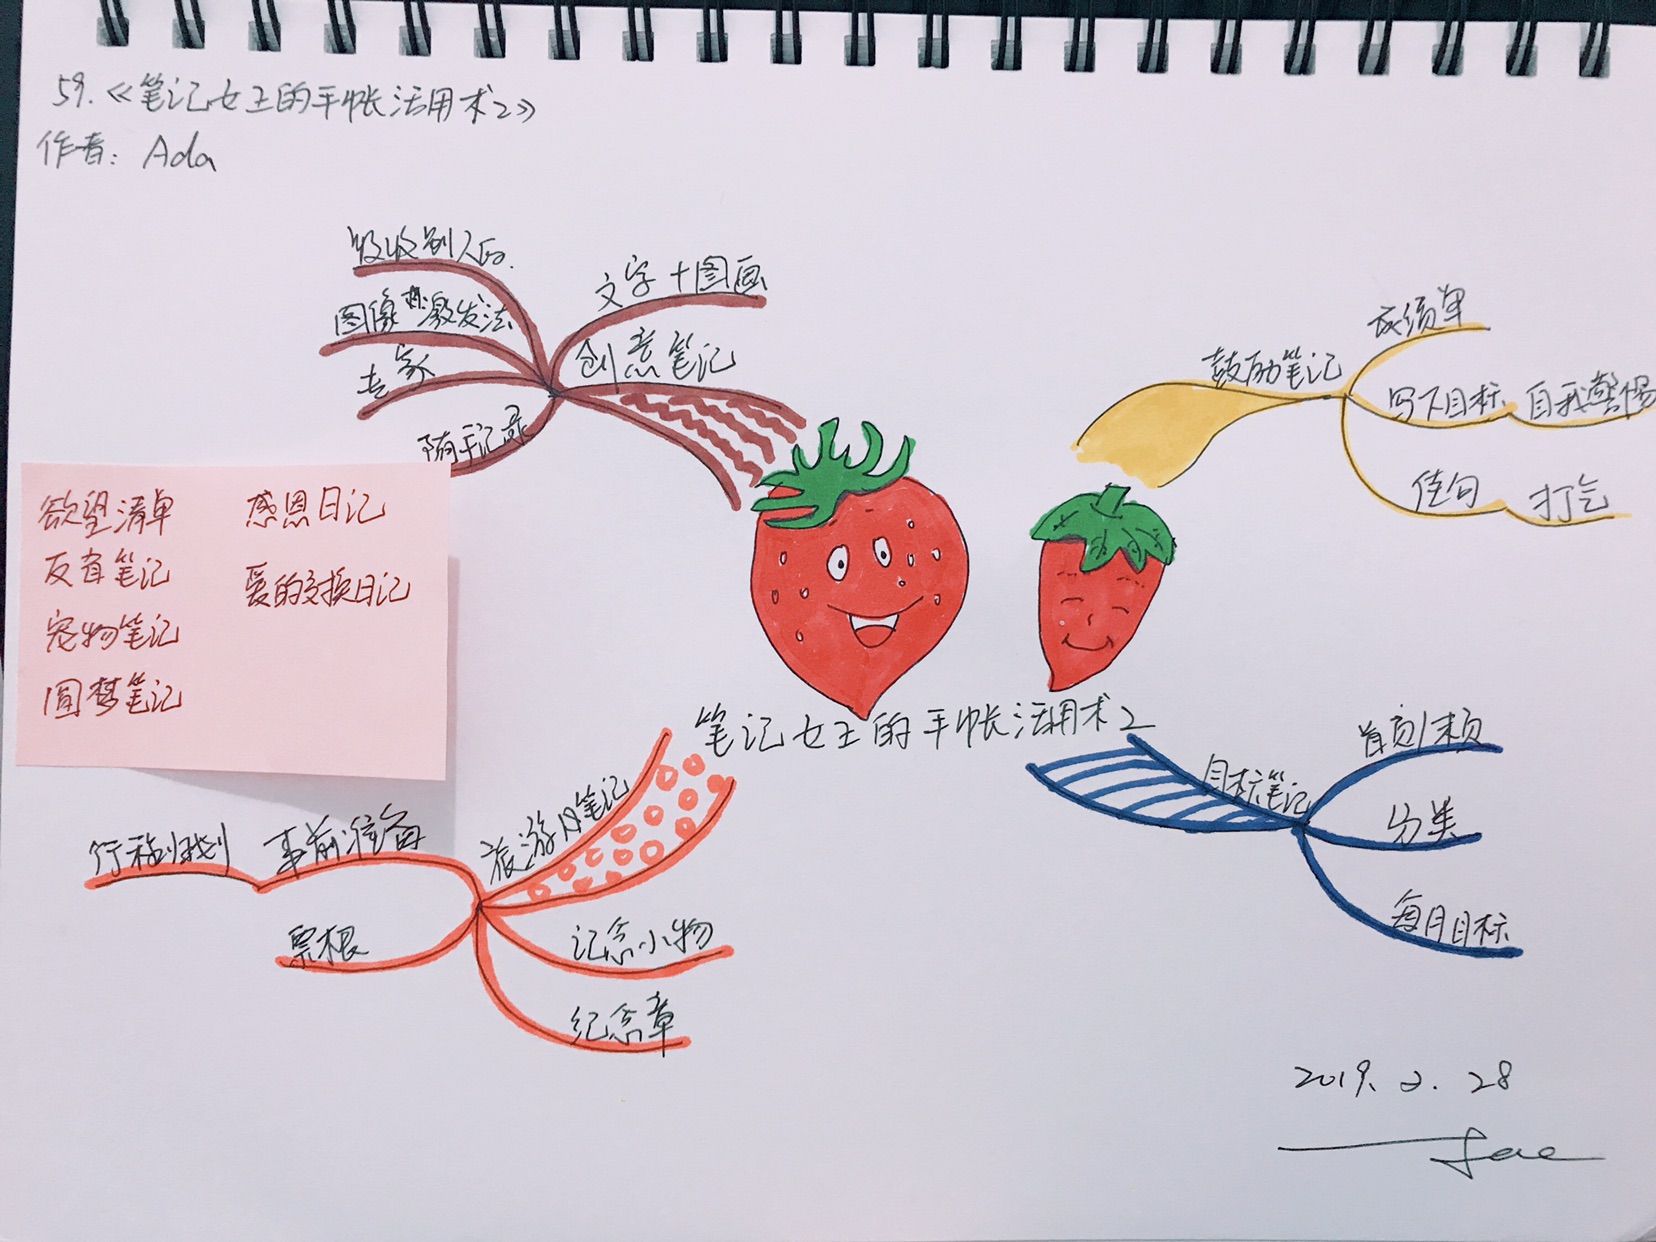 59.《笔记女王的手帐活用术2》
作者: Ada
吸收别人的.
图像激发法
专家
随手记录
文字+图画
创意笔记
鼓励笔记
成绩单
写下目标 自我警惕
佳句 打气
欲望清单
反省笔记
宠物笔记
圆梦笔记
感恩日记
爱的交换日记
笔记女王的手帐活用术2
旅游月笔记
事前准备
行程规划
票根
记念小物
纪念章
目标笔记
首页/末页
分类
每月目标
2019.2.28